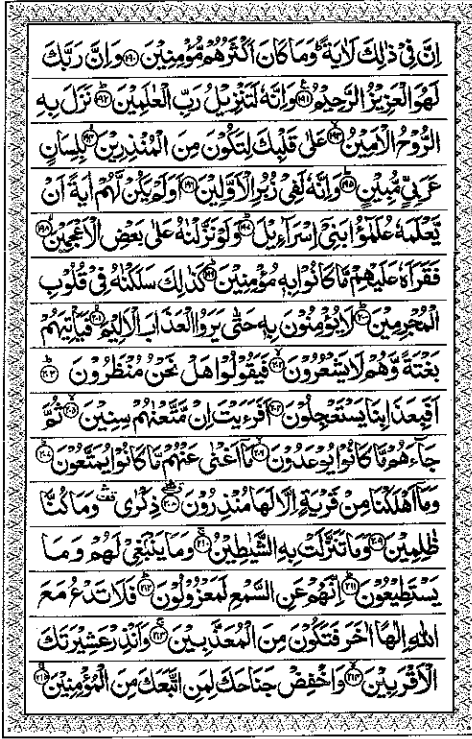 اِنَّ فِىْ ذٰلِكَ لَاٰيَةً ؕ وَمَا كَانَ اَكْثَرُهُمْ مُّؤْمِنِيْنَ ﴿۱۹۰﴾ وَاِنَّ رَبَّكَ
لَهُوَ الْعَزِيْزُ الرَّحِيْمُ ﴿۱۹۱﴾ وَاِنَّهٗ لَتَنْزِيْلُ رَبِّ الْعٰلَمِيْنَ ﴿۱۹۲﴾ نَزَلَ بِهِ
الرُّوْحُ الْاَمِيْنُ ﴿۱۹۳﴾ عَلٰى قَلْبِكَ لِتَكُوْنَ مِنَ الْمُنْذِرِيْنَ ﴿۱۹۴﴾ بِلِسَانٍ
عَرَبِىٍّ مُّبِيْنٍ ﴿۱۹۵﴾ وَاِنَّهٗ لَفِىْ زُبُرِ الْاَوَّلِيْنَ ﴿۱۹۶﴾ اَوَلَمْ يَكُنْ لَّهُمْ اٰيَةً اَنْ
يَّعْلَمَهٗ عُلَمٰٓؤُا بَنِىْٓ اِسْرَآءِيْلَ ﴿۱۹۷﴾ وَلَوْ نَزَّلْنٰهُ عَلٰى بَعْضِ الْاَعْجَمِيْنَ ﴿۱۹۸﴾
فَقَرَاَهٗ عَلَيْهِمْ مَّا كَانُوْا بِهٖ مُؤْمِنِيْنَ ﴿۱۹۹﴾ كَذٰلِكَ سَلَكْنٰهُ فِىْ قُلُوْبِ
الْمُجْرِمِيْنَ ﴿۲۰۰﴾ لَا يُؤْمِنُوْنَ بِهٖ حَتّٰى يَرَوُا الْعَذَابَ الْاَلِيْمَ ﴿۲۰۱﴾ فَيَاْتِيَهُمْ
بَغْتَةً وَّهُمْ لَا يَشْعُرُوْنَ ﴿۲۰۲﴾ فَيَقُوْلُوْا هَلْ نَحْنُ مُنْظَرُوْنَ ﴿۲۰۳﴾
اَفَبِعَذَابِنَا يَسْتَعْجِلُوْنَ ﴿۲۰۴﴾ اَفَرَءَيْتَ اِنْ مَّتَّعْنٰهُمْ سِنِيْنَ ﴿۲۰۵﴾ ثُمَّ
جَآءَهُمْ مَّا كَانُوْا يُوْعَدُوْنَ ﴿۲۰۶﴾ مَآ اَغْنٰى عَنْهُمْ مَّا كَانُوْا يُمَتَّعُوْنَ ﴿۲۰۷﴾
وَمَآ اَهْلَكْنَا مِنْ قَرْيَةٍ اِلَّا لَهَا مُنْذِرُوْنَ ﴿۲۰۸﴾ ذِكْرٰى وَمَا كُنَّا
ظٰلِمِيْنَ ﴿۲۰۹﴾ وَمَا تَنَزَّلَتْ بِهِ الشَّيٰطِيْنُ ﴿۲۱۰﴾ وَمَا يَنْبَغِىْ لَهُمْ وَمَا
يَسْتَطِيْعُوْنَ ﴿۲۱۱﴾ اِنَّهُمْ عَنِ السَّمْعِ لَمَعْزُوْلُوْنَ ﴿۲۱۲﴾ فَلَا تَدْعُ مَعَ
اللّٰهِ اِلٰهًا اٰخَرَ فَتَكُوْنَ مِنَ الْمُعَذَّبِيْنَ ﴿۲۱۳﴾ وَاَنْذِرْ عَشِيْرَتَكَ
الْاَقْرَبِيْنَ ﴿۲۱۴﴾ وَاخْفِضْ جَنَاحَكَ لِمَنِ اتَّبَعَكَ مِنَ الْمُؤْمِنِيْنَ ﴿۲۱۵﴾